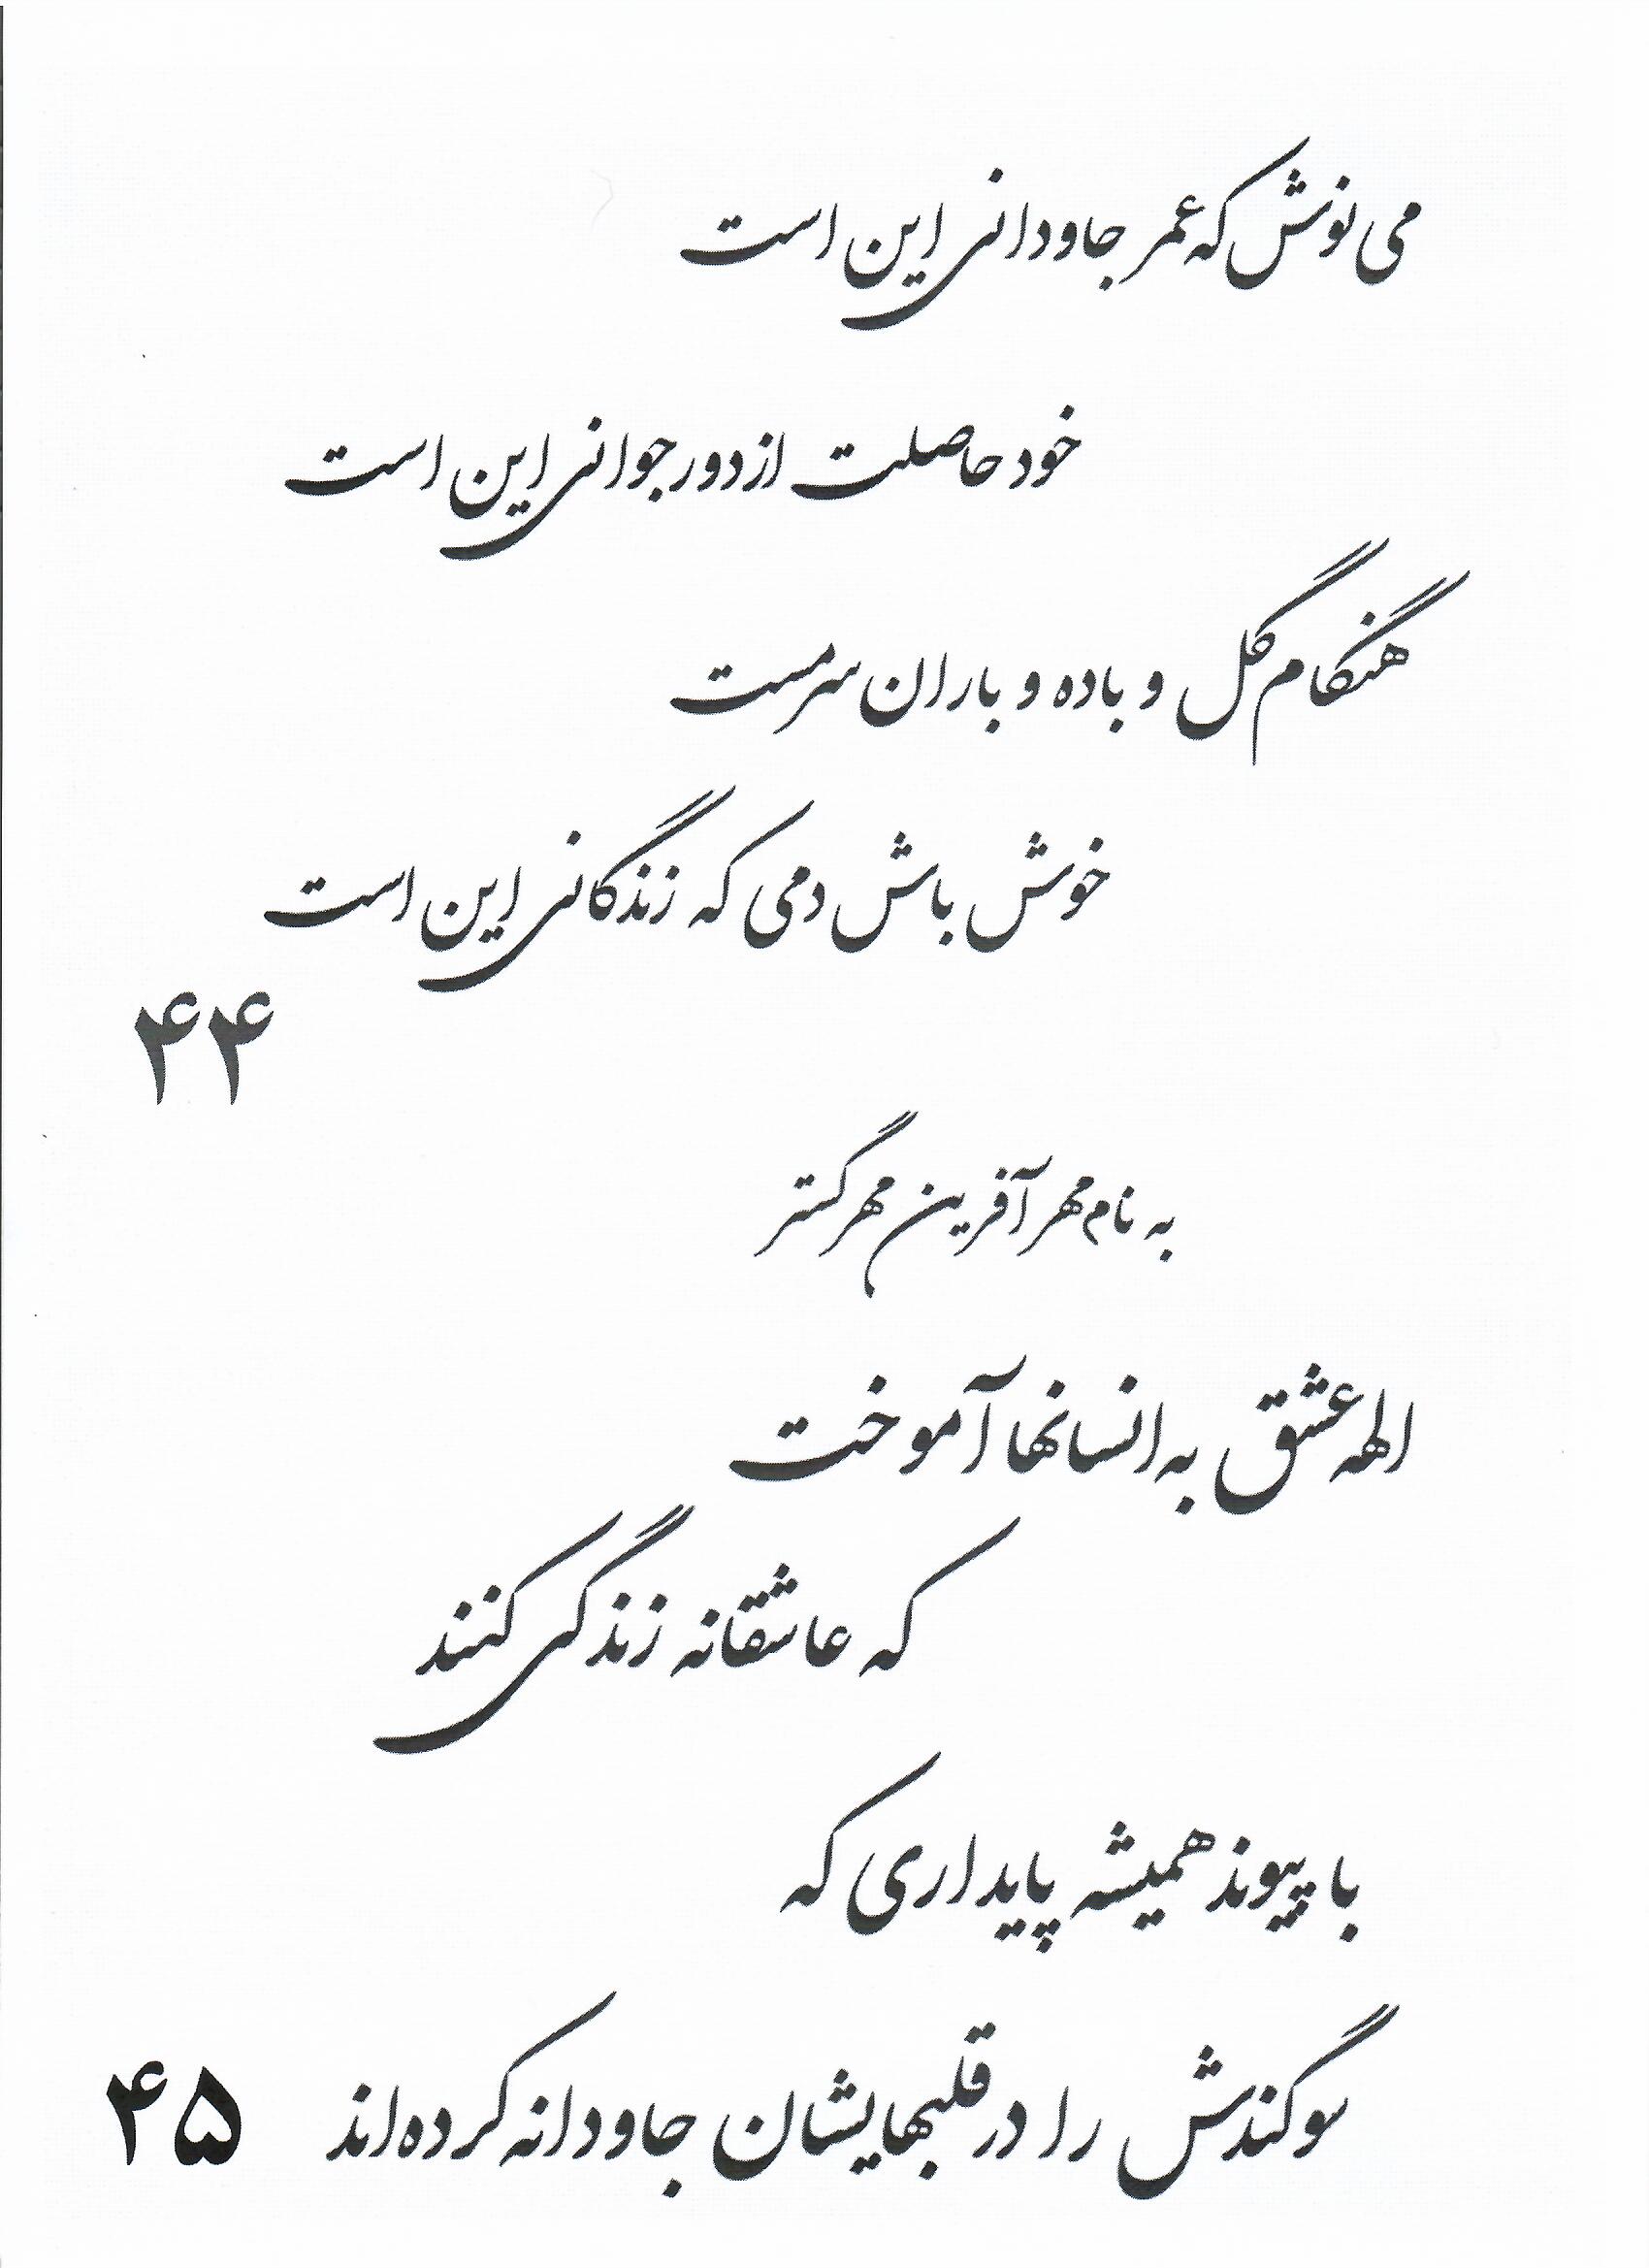 می نوش که عمر جاودانی این است
خود حاصلت از دور جوانی این است
هنگام گل و باده و باران سرمست
خوش باش دمی که زندگانی این است
۴۴
به نام مهر آفرین مهر گستر
الهه عشق به انسانها آموخت
که عاشقانه زندگی کنند
با پیوند همیشه پایداری که
سوگندش را در قلبهایشان جاودانه کرده‌اند
۴۵